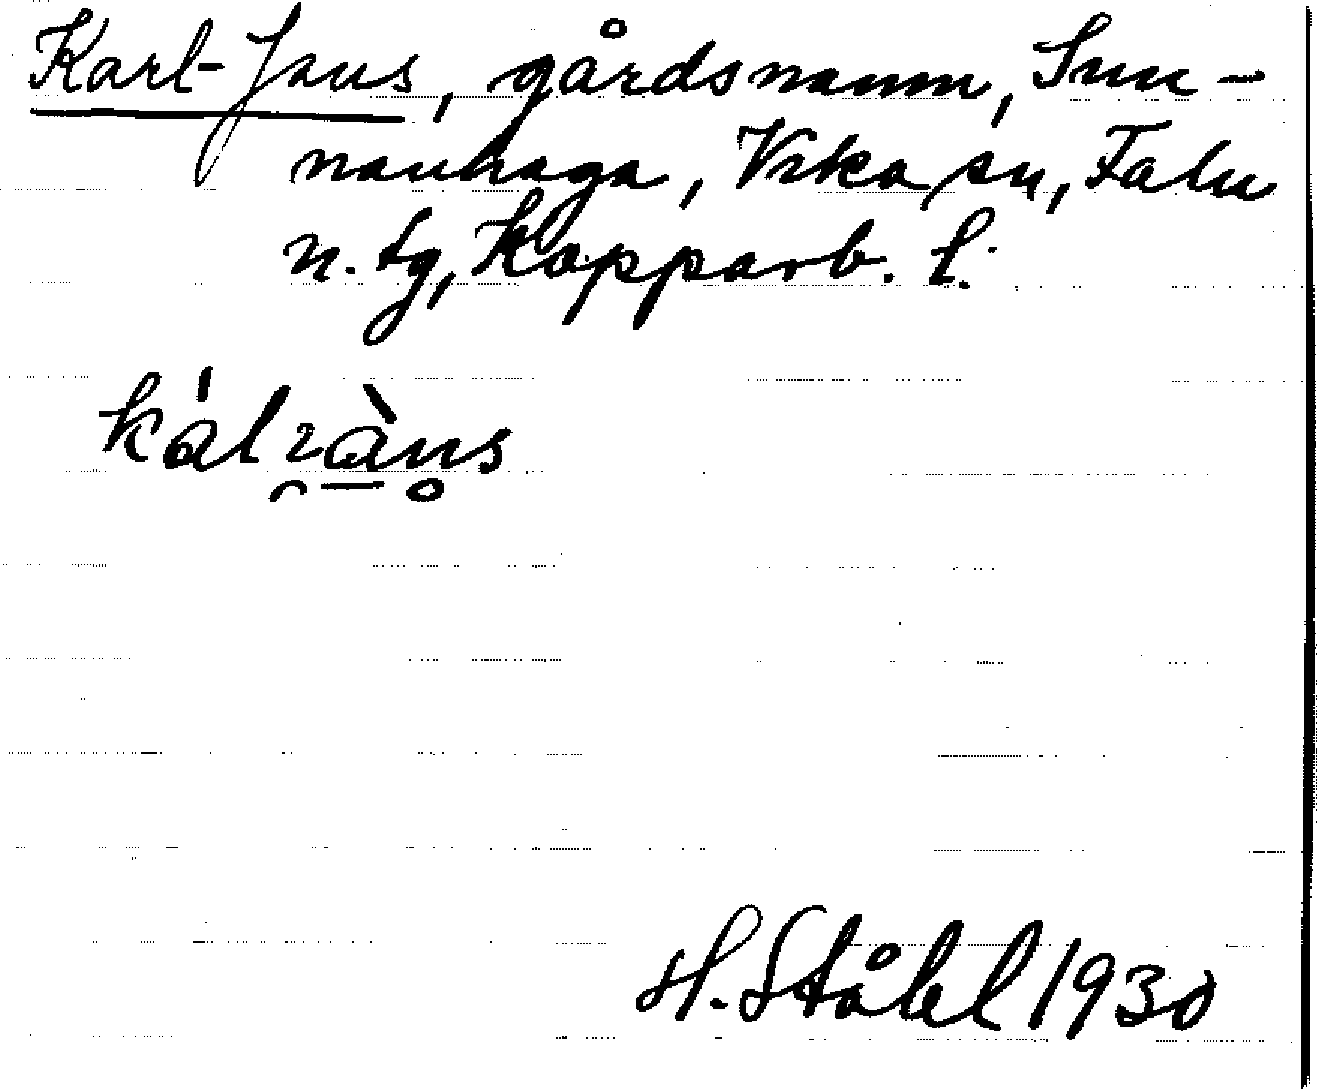 Karl-Jans, gårdsnamn, Sun-
nanhaga, Vika sn, Falu
n. tg, Kopparb. l.
H. Ståhl 1930